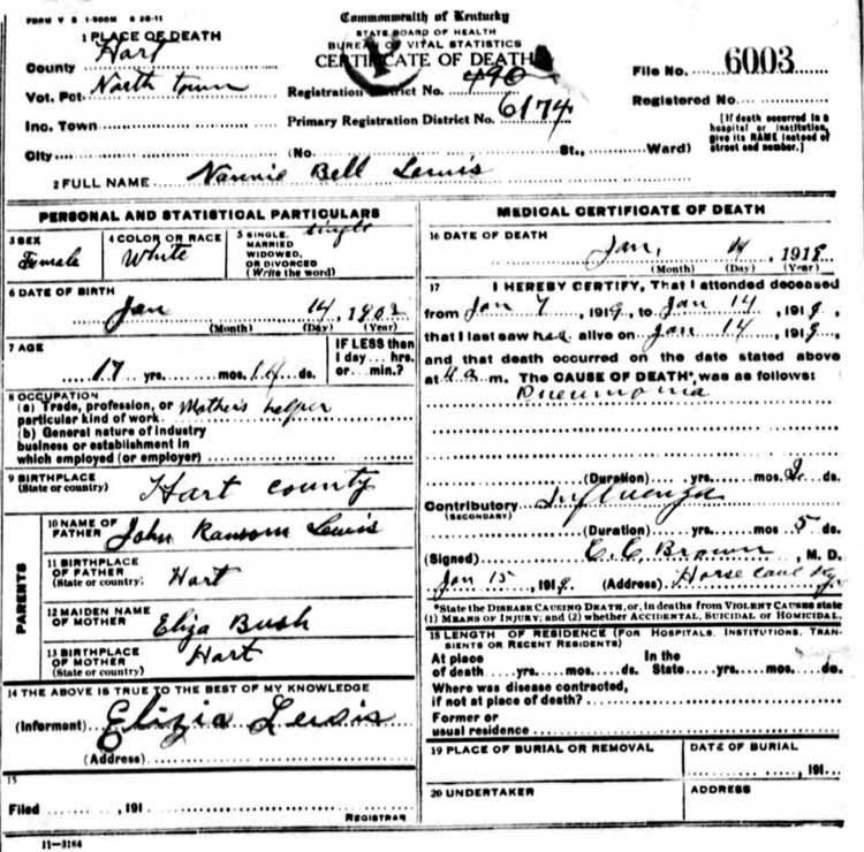 FORM V S 1-500M 6 20-11
Commonwealth of Kentucky
STATE BOARD OF HEALTH
BUREAU OF VITAL STATISTICS
CERTIFICATE OF DEATH
1 PLACE OF DEATH
County Hart
Vot. Pct. North town
Inc. Town
City (No. St., Ward)
Registration District No. 490
Primary Registration District No. 6174
File No. 6003
Registered No.
[If death occurred in a
hospital or institution,
give its NAME instead of
street and number.]
2 FULL NAME Nannie Bell Lewis
PERSONAL AND STATISTICAL PARTICULARS
3 SEX
Female
4 COLOR OR RACE
White
5 SINGLE, MARRIED WIDOWED, OR DIVORCED (Write the word)
single
6 DATE OF BIRTH
Jan 14, 1902
(Month) (Day) (Year)
7 AGE
17 yrs. mos. ds.
IF LESS then
1 day... hrs.
or... min.?
8 OCCUPATION
(a) Trade, profession, or
particular kind of work Mother's helper
(b) General nature of industry
business or establishment in
which employed (or employer)
9 BIRTHPLACE
(State or country) Hart County
PARENTS
10 NAME OF
FATHER John Ransom Lewis
11 BIRTHPLACE
OF FATHER
(State or country) Hart
12 MAIDEN NAME
OF MOTHER Eliza Bush
13 BIRTHPLACE
OF MOTHER
(State or country) Hart
14 THE ABOVE IS TRUE TO THE BEST OF MY KNOWLEDGE
(Informant) Elizia Lewis
(Address)
15
Filed , 191
REGISTRAR
11-3184
MEDICAL CERTIFICATE OF DEATH
16 DATE OF DEATH
Jan, 14, 1919
(Month) (Day) (Year)
17 I HEREBY CERTIFY, That I attended deceased
from Jan 7, 1919, to Jan 14, 1919,
that I last saw her alive on Jan 14, 1919,
and that death occurred on the date stated above
at 4 a m. The CAUSE OF DEATH*, was as follows:
Pneumonia
(Duration) yrs. mos. 2 ds.
Contributory Influenza
(SECONDARY)
(Duration) yrs. mos 5 ds.
(Signed) C. C. Brown, M. D.
Jan 15, 1919 (Address) Horse Cave Ky.
*State the DISEASE CAUSING DEATH, or, in deaths from VIOLENT CAUSES state
(1) MEANS OF INJURY; and (2) whether ACCIDENTAL, SUICIDAL OR HOMICIDAL.
18 LENGTH OF RESIDENCE (FOR HOSPITALS, INSTITUTIONS, TRAN-
SIENTS OR RECENT RESIDENTS)
At place In the
of death yrs. mos. ds. State yrs. mos. ds.
Where was disease contracted,
if not at place of death?
Former or
usual residence
19 PLACE OF BURIAL OR REMOVAL
DATE OF BURIAL
, 191
20 UNDERTAKER
ADDRESS